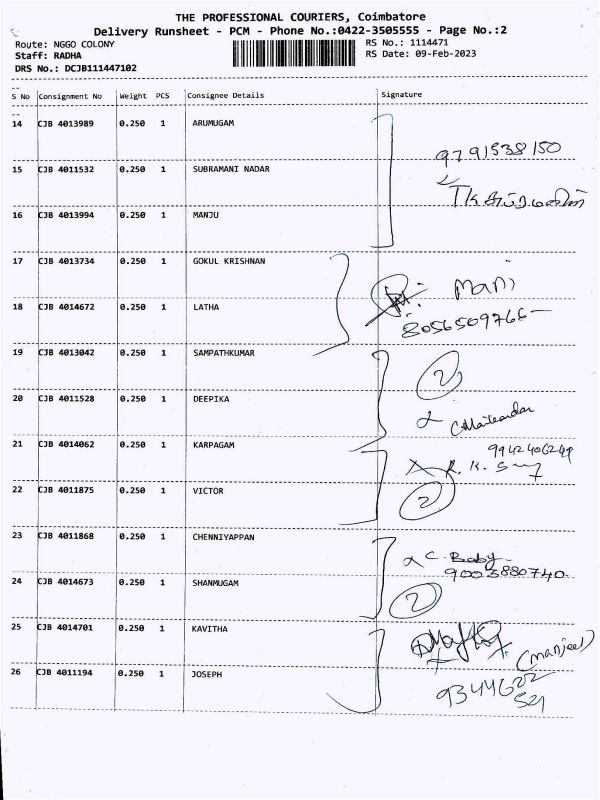 THE PROFESSIONAL COURIERS, Coimbatore
Delivery Runsheet - PCM - Phone No.:0422-3505555 - Page No.:2
Route: NGGO COLONY RS No.: 1114471
Staff: RADHA RS Date: 09-Feb-2023
DRS No.: DCJB111447102
S No Consignment No Weight PCS Consignee Details Signature
14 CJB 4013989 0.250 1 ARUMUGAM
9791538150
15 CJB 4011532 0.250 1 SUBRAMANI NADAR
TK
16 CJB 4013994 0.250 1 MANJU
17 CJB 4013734 0.250 1 GOKUL KRISHNAN
Mani
18 CJB 4014672 0.250 1 LATHA
8056509766
19 CJB 4013042 0.250 1 SAMPATHKUMAR
2
20 CJB 4011528 0.250 1 DEEPIKA
21 CJB 4014062 0.250 1 KARPAGAM
9942406249
R. K.
22 CJB 4011875 0.250 1 VICTOR
2
23 CJB 4011868 0.250 1 CHENNIYAPPAN
C. Baby
9003880740
24 CJB 4014673 0.250 1 SHANMUGAM
2
25 CJB 4014701 0.250 1 KAVITHA
26 CJB 4011194 0.250 1 JOSEPH
9344622
521